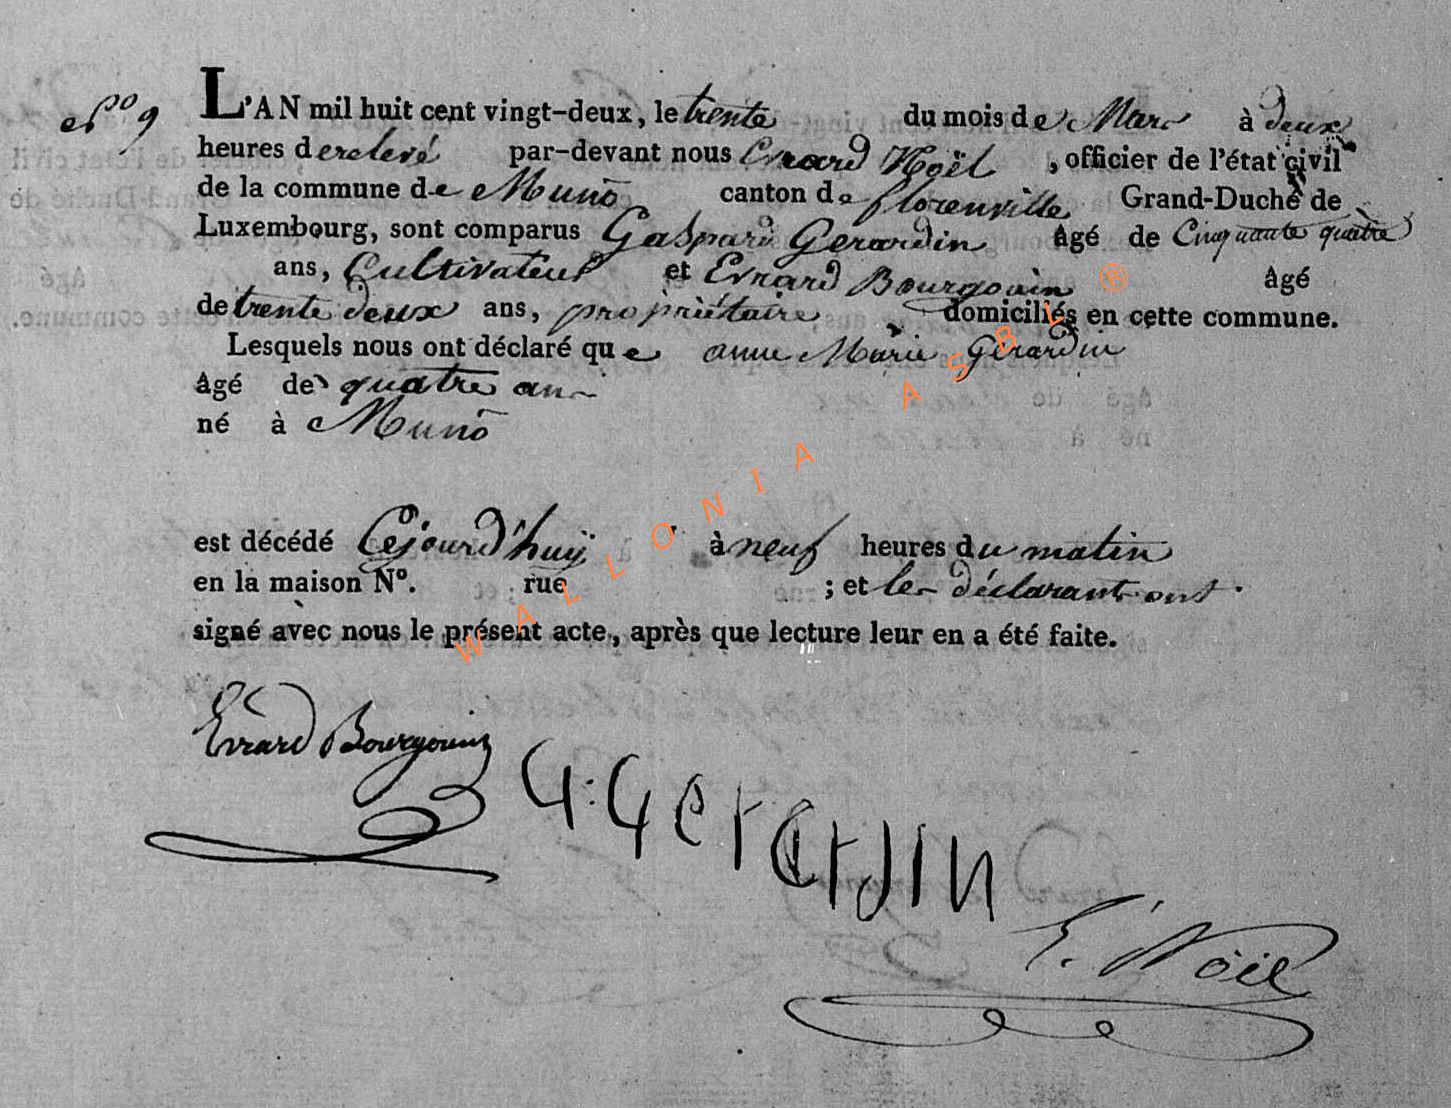 N° 9
L'AN mil huit cent vingt-deux, le trente du mois de Mars à deux
heures de relevé par-devant nous Evrard Noël, officier de l'état civil
de la commune de Muno canton de florenville Grand-Duché de
Luxembourg, sont comparus Gaspard Gerardin âgé de Cinquante quatre
ans, Cultivateur et Evrard Bourgouin âgé
de trente deux ans, propriétaire domiciliés en cette commune.
Lesquels nous ont déclaré que anne Marie Gerardin
âgé de quatre ans
né à Muno
est décédé Cejourd'huÿ à neuf heures du matin
en la maison N°. rue ; et les déclarants ont
signé avec nous le présent acte, après que lecture leur en a été faite.
Evrard Bourgouin
G: Gerardin
E. Noël
WALLONIA ASBL ®